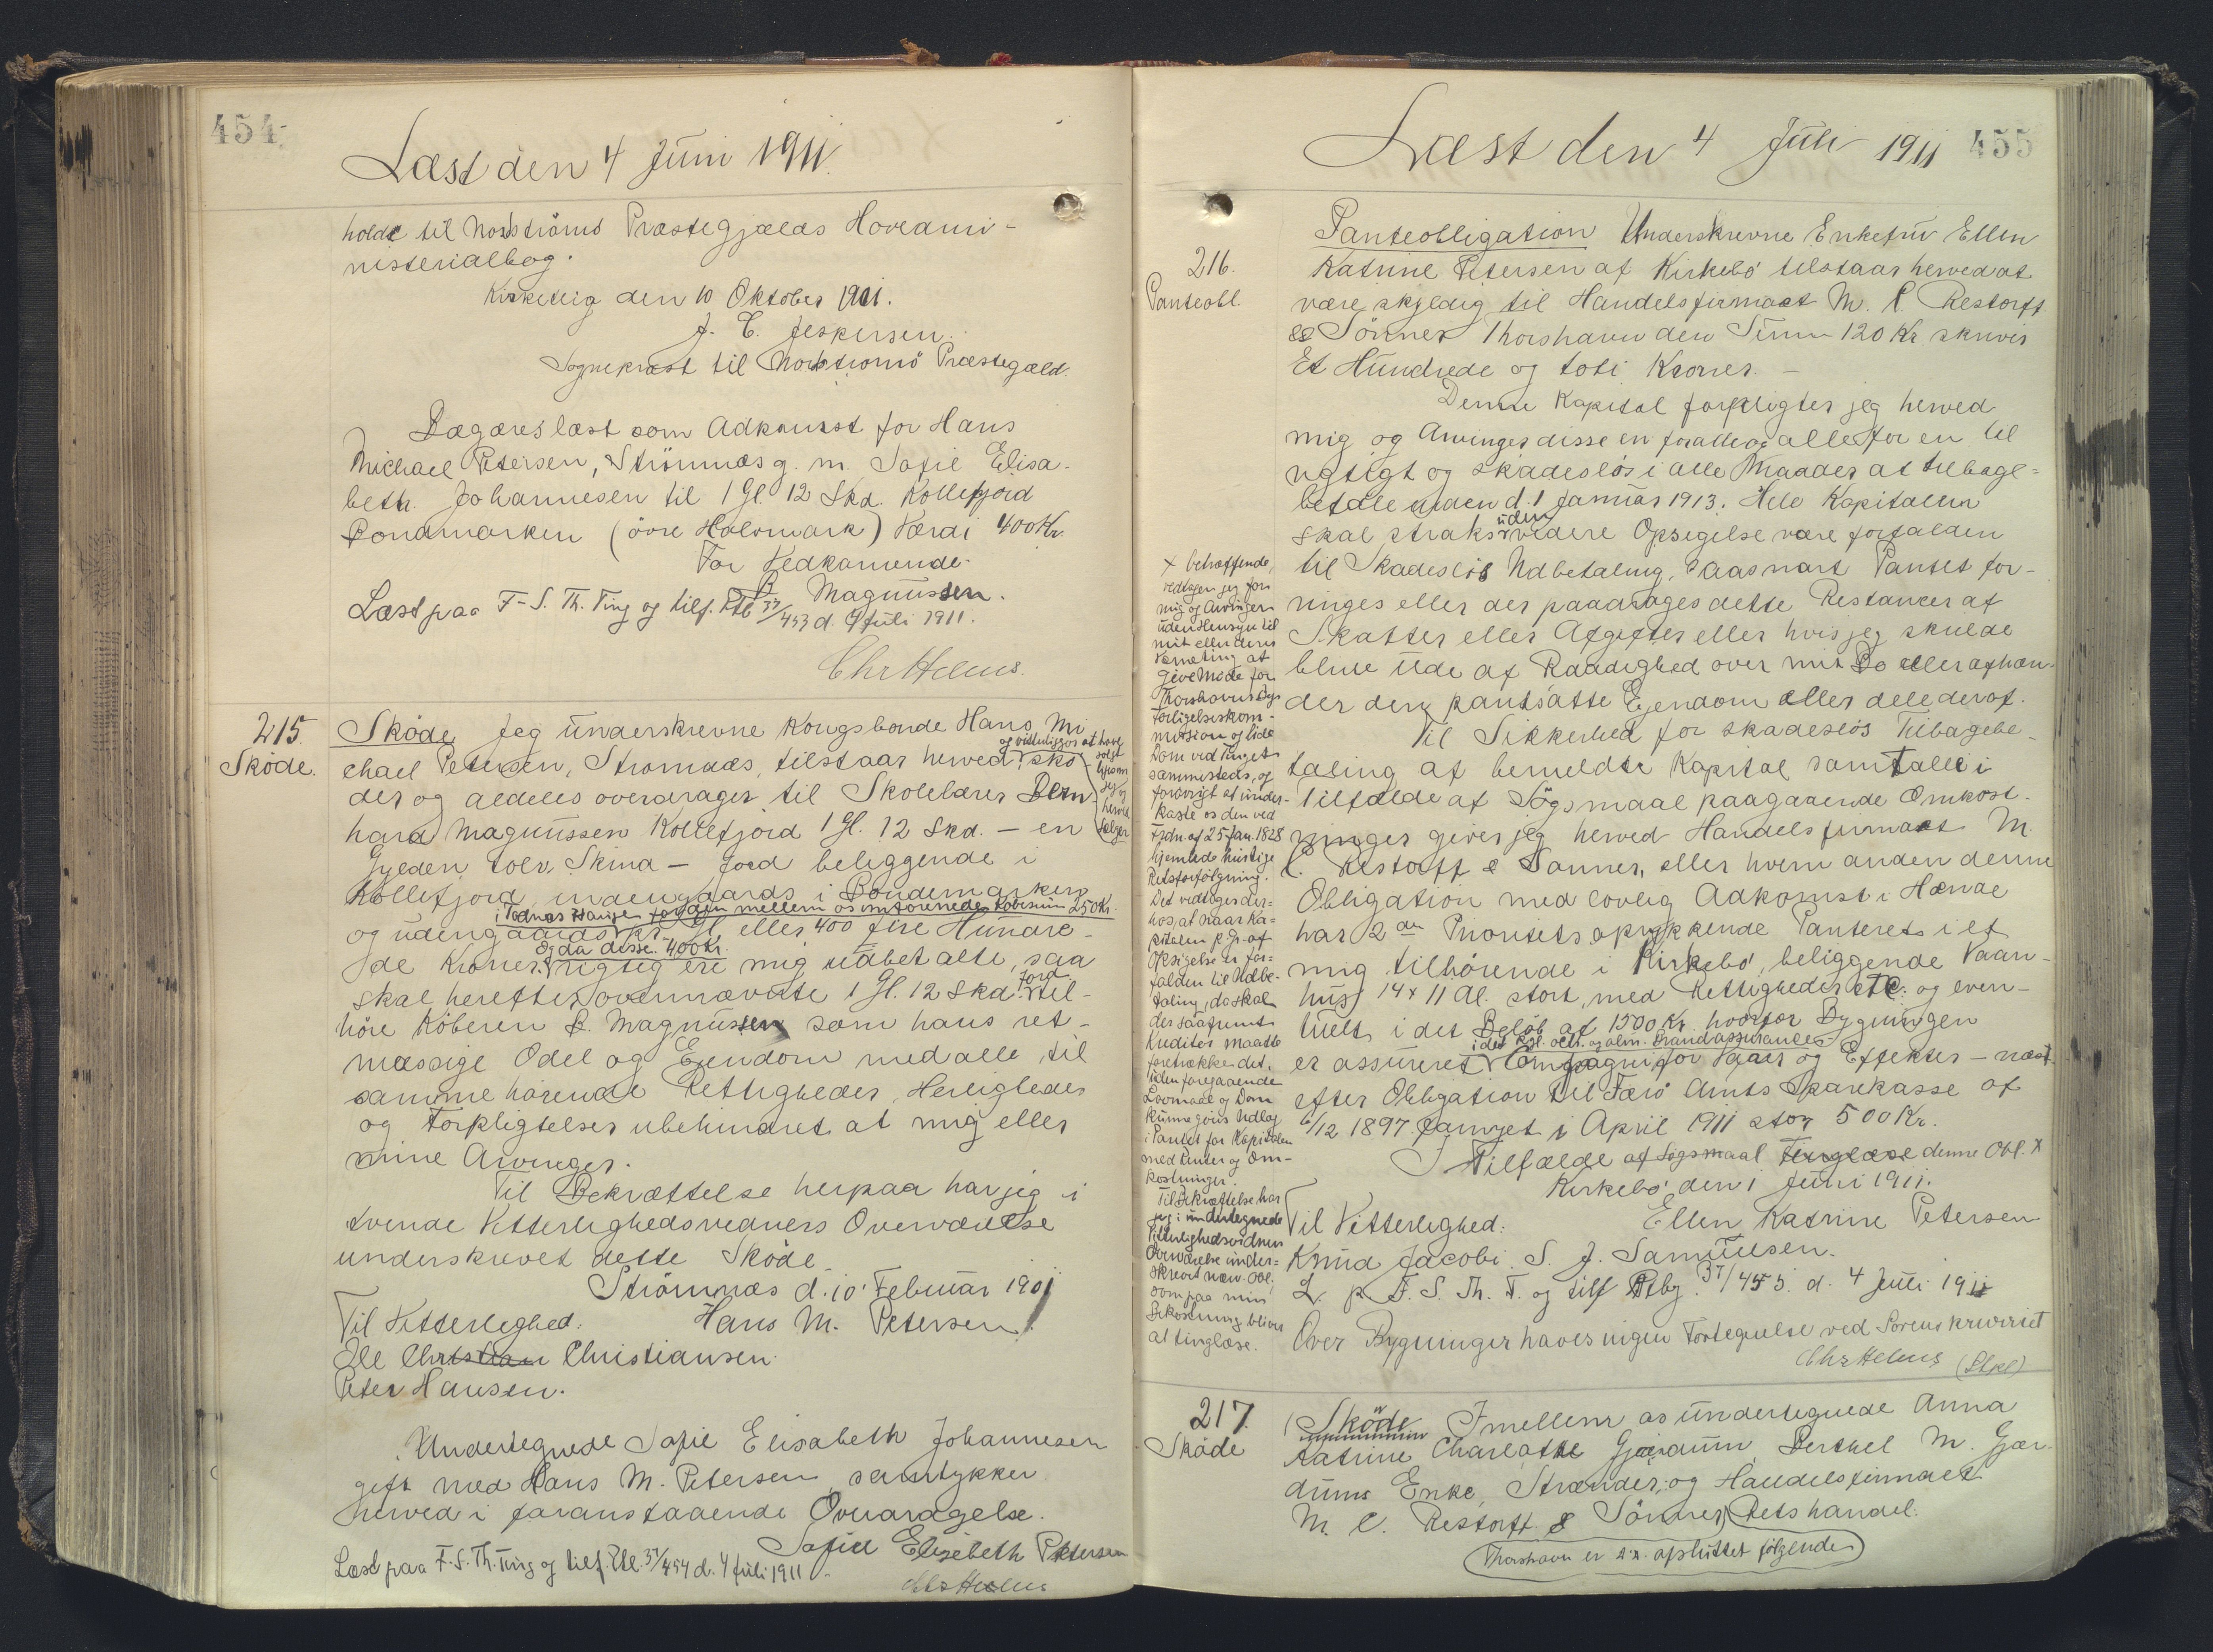 454
Læst den 4 Juni 1911.
holdt til Nordströmö Præstegjælds Hovedmi-
nisterialbog.
den 10 Oktober 1911.
J. C. Jespersen.
Sognepræst til Nordströmö Præstegæld.
læst som Adkomst for Hans
Michael Petersen, Strömnæs g. m. Sofie Elisa-
beth Johannesen til 1 Gl 12 Skd. Kollefjord
Bondmarken (övre Halvmark) Værdi 400 Kr.
For Vedkomende.
B Magnussen.
Læst paa F-S. Th. Ting og tilf. Ptb 37/453 d. 4 Juli 1911.
Chr Helms.
215.
Sköde.
Sköde Jeg underskrevne Kongsbonde Hans Mi
chael Petersen, Stromnæs, tilstaar herved sko
og vitterliggør at have
solgt
ligesom
jeg og
herved
sælger
der og aldeles overdrager til Skolelærer Dem
hard Magnussen Kollefjord 1 Gl. 12 Skd. – en
Gylden tolv Skind – Jord beliggende i
Kollefjord indengaards i Bondemarken
i Tadnes Haugen for den mellem os omforenede Købesum 250 Kr.
og udengaards Kr. Gl eller 400 fire Hundre-
og da disse 400 Kr.
de Kroner rigtig ere mig udbetalte, saa
skal herefter ovennævnte 1 Gl. 12 Skd. Jord til-
höre Köberen B. Magnussen som hans ret-
mæssige Odel og Ejendom med alle til
samme hörende Rettigheder, Herligheder
og Forpligtelser ubehindret at mig eller
mine Arvinger.
Til Bekræftelse herpaa har jeg i
tvende Vitterlighedsvidners Overværelse
underskrevet dette Sköde.
Strömnæs d. 10 Februar 1901
Til Vitterlighed: Hans M. Petersen.
Ole Christian Christiansen.
Peter Hansen.
Undertegnede Sofie Elisabeth Johannesen
gift med Hans M. Petersen samtykker
herved i foranstaaende Overdragelse.
Sofie Elisebeth Petersen
Læst paa F.-S. Th. Ting og tilf. Ptb. 37/454 d. 4 Juli 1911.
Chr Helms
Læst den 4 Juli 1911 455
216.
Panteobl.
Panteobligation Underskrevne Enkefru Ellen
Katrine Petersen af Kirkebö tilstaar herved at
være skyldig til Handelsfirmaet M. C. Restorff
& Sönner Thorshavn den Sum 120 Kr skriver
Et Hundrede og toti Kroner. –
Denne Kapital forpligter jeg herved
mig og Arvinger disse en for alle og alle for en til
rigtigt og skadeslös i alle Maader at tilbage-
betale inden d. 1 Januar 1913. Hele Kapitalen
skal straks uden videre Opsigelse være forfalden
til Skadeslös Udbetaling, saasnart Pantet for-
ringes eller der paadrages dette Restancer af
Skatter eller Afgifter eller hvis jeg skulde
blive ude af Raadighed over mit Bo eller afhæn-
der den pantsatte Ejendom eller dele deraf.
Til Sikkerhed for skadeslös Tilbagebe-
taling af bemeldte Kapital samt alle i
Tilfælde af Sögsmaal paagaaende Omkost-
ninger giver jeg herved Handelsfirmaet M.
C. Restorff & Sönner, eller hvem anden denne
Obligation med lovlig Adkomst i Hænde
har 2den Prioritets oprykkende Panteret i et
mig tilhörende i Kirkebö, beliggende Vaan-
hus 14 x 11 Al. stort, med Rettigheder etc. og even-
tuelt i det Belöb af 1500 Kr. hvorfor Bygningen
i det Kgl. octr. og alm. Brandassurance
er assureret Compagni for Varer og Effekter – næst
efter Obligation til Færö Amts Sparekasse af
6/12 1897. fornyet i April 1911 stor 500 Kr.
I Tilfælde af Sögsmaal Tinglæse denne Obl. x
Kirkebö, den 1 Juni 1911.
Til Vitterlighed: Ellen Katrine Petersen.
Knud Jacobi S. J. Samuelsen.
L. p. F. S. Th. T. og tilf Ptbg. 37/455. d. 4 Juli 1911
Over Bygninger haves ingen Fortegnelse ved Sorenskriveriet
Chr Helms (Stpl)
x betræffende,
vedtager jeg for
mig og Arvinger
uden Hensyn til
mit eller deres
Værneting at
give Möde for
Thorshavns Bys
Forligelseskom-
mission og lide
Dom ved Tinget
sammesteds, og
forövrigt at under-
kaste os den ved
Frdn. af 25 Jan. 1828
hjemlede hurtige
Retsforfölgning.
Det vedtages der-
hos, at naar Ka-
pitalen p. Gr. af
Opsigelse er for-
falden til Udbe-
taling, da skal
der saafremt
Kreditor maatte
foretrække det,
uden foregaaende
Lovmaal og Dom
kunne göres Udlæg
i Pantet for Kapitalen
med Renter og Om-
kostninger.
Til Bekræftelse har
jeg i undertegnede
Vitterlighedsvidners
Overværelse under-
skrevet nærv. Obl.
som paa min
Bekostning bliver
at tinglæse.
217.
Sköde
Sköde Imellem os undertegnede Anna
Katrine Charlotte Gjærdum, Berthel M. Gjær-
dums Enke, Strænder, og Handelsfirmaet
M. C. Restorff & Sönner, Retshandel.
Thorshavn er D.D. afsluttet følgende